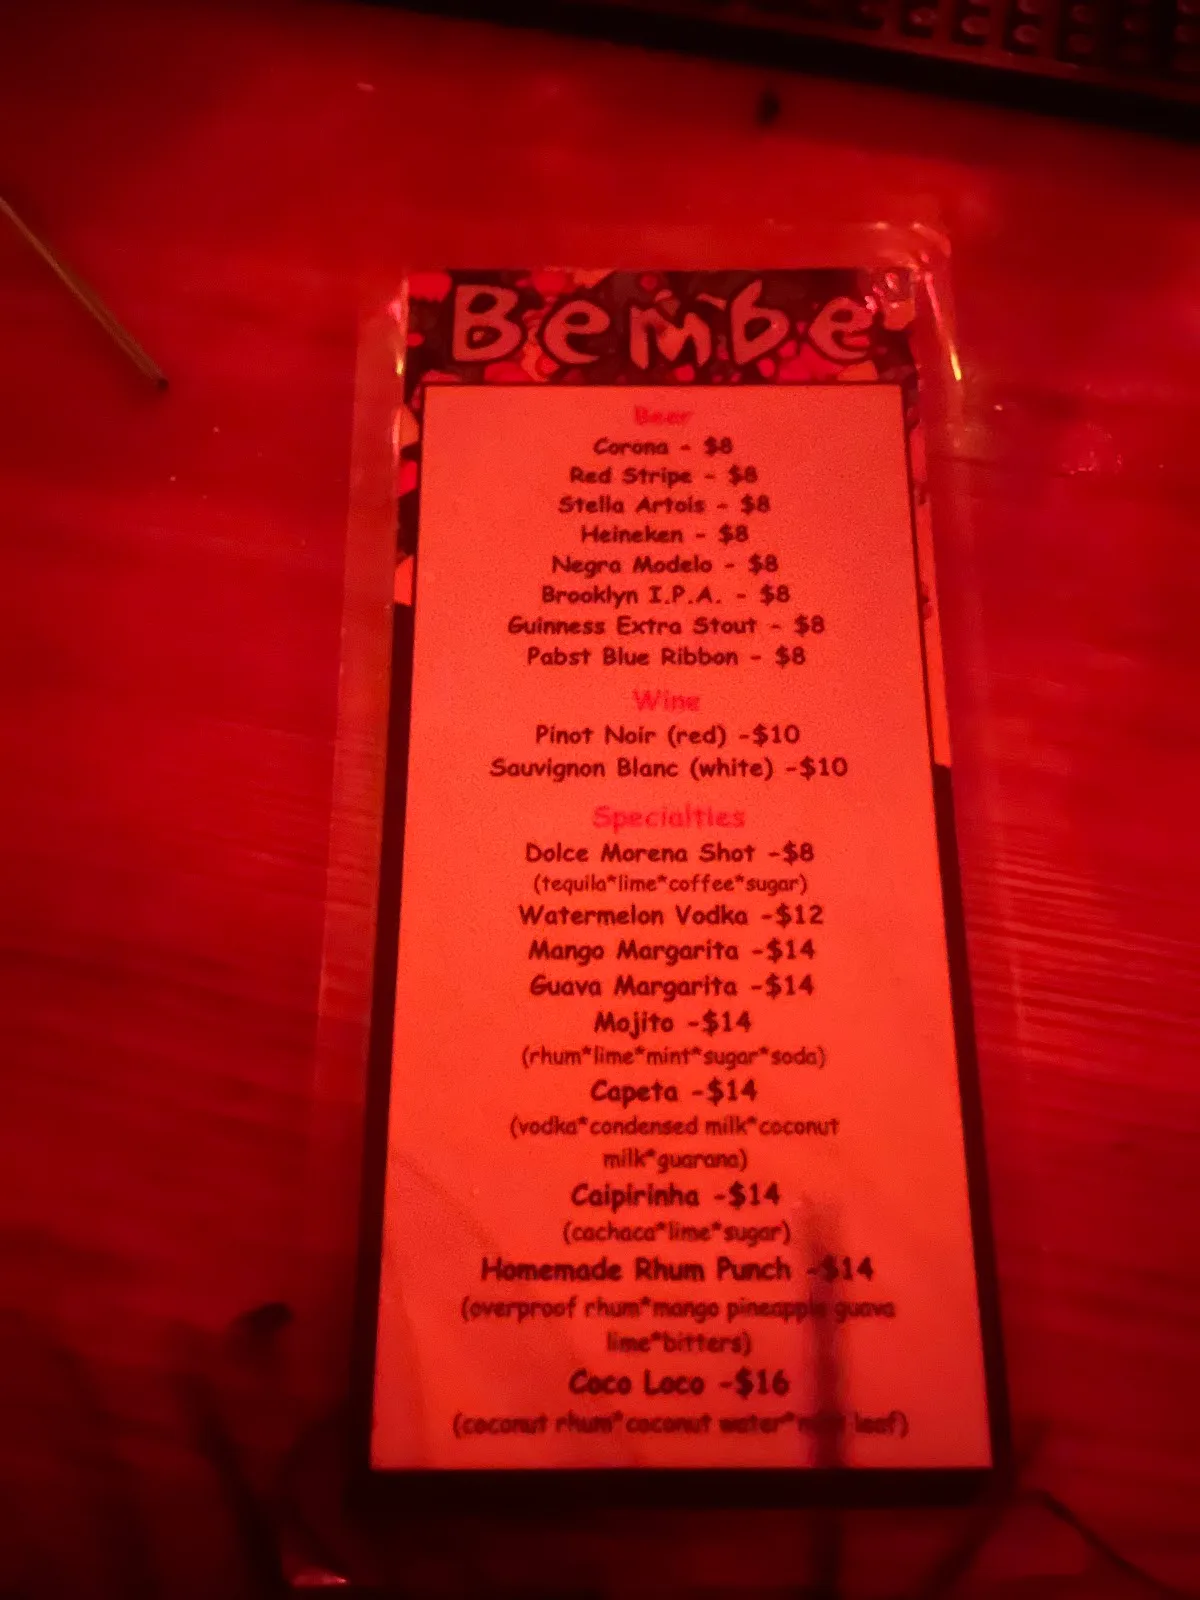 Bembe
Beer
Corona - $8
Red Stripe - $8
Stella Artois - $8
Heineken - $8
Negra Modelo - $8
Brooklyn I.P.A. - $8
Guinness Extra Stout - $8
Pabst Blue Ribbon - $8
Wine
Pinot Noir (red) -$10
Sauvignon Blanc (white) -$10
Specialties
Dolce Morena Shot -$8
(tequila*lime*coffee*sugar)
Watermelon Vodka -$12
Mango Margarita -$14
Guava Margarita -$14
Mojito -$14
(rhum*lime*mint*sugar*soda)
Capeta -$14
(vodka*condensed milk*coconut
milk*guarana)
Caipirinha -$14
(cachaca*lime*sugar)
Homemade Rhum Punch -$14
(overproof rhum*mango pineapple guava
lime*bitters)
Coco Loco -$16
(coconut rhum*coconut water* leaf)